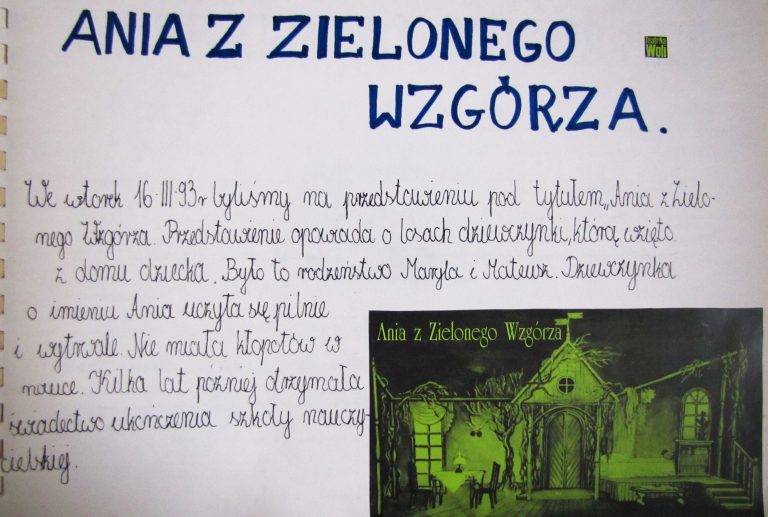 ANIA Z ZIELONEGO
WZGÓRZA.
Woli
We wtorek 16·III·93r byliśmy na przedstawieniu pod tytułem „Ania z Zielo-
nego Wzgórza. Przedstawienie opowiada o losach dziewczynki, którą wzięto
z domu dziecka. Było to rodzeństwo Maryla i Mateusz. Dziewczynka
o imieniu Ania uczyła się pilnie
i wytrwale. Nie miała kłopotów w
nauce. Kilka lat później otrzymała
świadectwo ukończenia szkoły nauczy-
cielskiej.
Ania z Zielonego Wzgórza